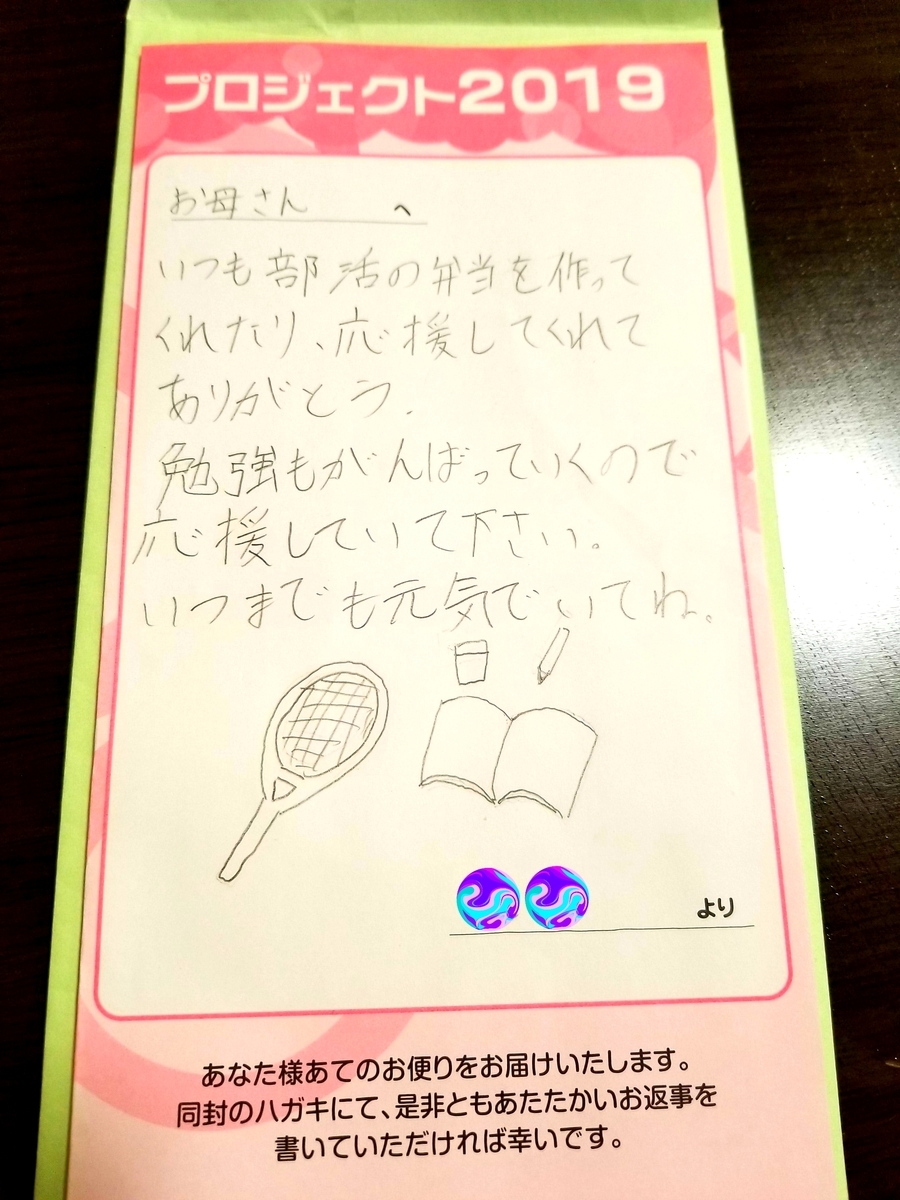 プロジェクト2019
お母さん へ
いつも部活の弁当を作って
くれたり、応援してくれて
ありがとう.
勉強もがんばっていくので
応援していて下さい。
いつまでも元気でいてね。
より
あなた様あてのお便りをお届けいたします。
同封のハガキにて、是非ともあたたかいお返事を
書いていただければ幸いです。